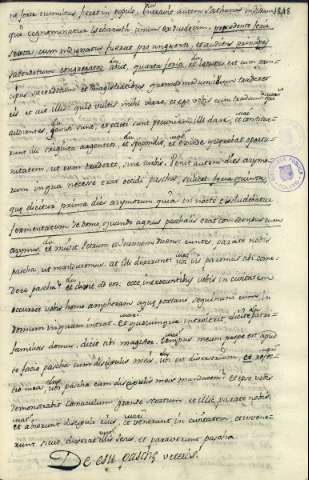 ne forte tumultus fieret in populo, Intravit autem Sathanas in Judam
qui cognominatur Iscariotes unum ex duodecim, precedente feria
quarta feria
sacerdotum et magistratibus quemadmodum traderet
eis et ait illis quid vultis mihi dare, et ego vobis eum tradam qui
audientes, gavisi sunt, et pacti sunt pecuniam illi dare, et constitue-
runt illi triginta argenteos, et spopondit, et exinde querebat oportu-
nitatem, ut eum traderet, sine turbis. Venit autem dies azymo-
rum in qua necesse erat occidi pascha, scilicet feria quinta
que dicitur prima dies azymorum quia in nocte excludebatur
fermentatum de domo quando agnus paschalis erat comedendus cum
azymis, et misit Petrum et Joannem dicens euntes, parate nobis
pascha, ut manducemus, at illi dixerunt ubi vis paremus tibi come-
dere pascha? et dixit ad eos. ecce introeuntibus vobis in civitatem
occurret vobis homo amphoram aque portans sequimini eum, in
domum in quam intrat, et quocumque introierit dicite patri
familias domus, dicit tibi magister tempus meum prope est apud
te facio pascha cum discipulis meis, ubi est diversorium, et refec-
tio mea, ubi pascha cum discipulis meis manducem? et ipse vobis
demonstrabit cenaculum grande stratum, et illic parate nobis,
et abierunt discipuli eius, et venerunt in civitatem, et invene-
runt sicut dixerat illis Jesus, et paraverunt pascha
De esu pasche veteris.